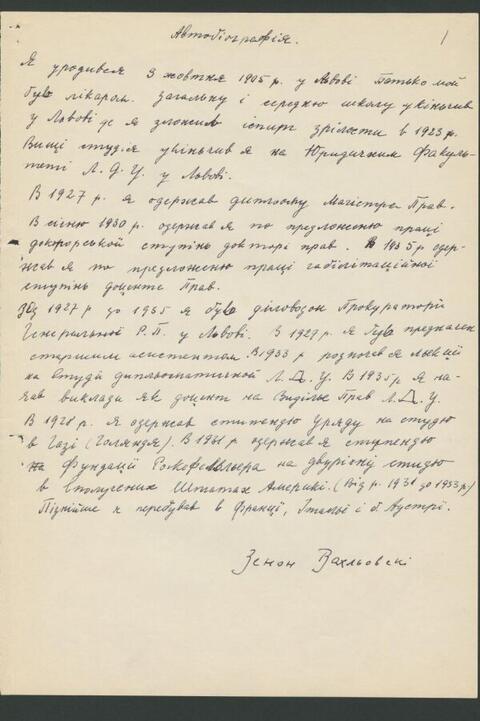 Автобіографія.
1
Я уродився 3 жовтня 1905 р. у Львові Батько мой
був лікаром. Загальну і середню школу укінчив
у Львові де я зложив іспит зрілости в 1923 р.
Вищі студія укінчив я на Юридичним Факуль-
теті Л. Ф. У. у Львові.
В 1927 р. я одержав дипльому Магістра Прав.
В січню 1930 р. одержав я по предложеню праці
докторської ступінь доктора прав. В 1935 р одер-
жав я по предложеню праці габілітаційної
ступінь доцента Прав.
Від 1927 р до 1935 я був діловодом Прокураторії
Генеральної Р. П. у Львові. В 1927 р. я був предначен
старшим асистентом. В 1933 р розпочав я лєкції
на Студії дипльоматичной Л. Д. У. В 1935 р я на-
чав виклади як доцент на Виділє Прав Л. Д. У.
В 1928 р. я одержав стипендю Уряду на студю
в Газі (Голяндя). В 1931 р одержав я ступендю
на Фундації Рокофельєра на двурічні студю
в Сполучених Штатах Америкі. (Від р. 1931 до 1933 р)
Пізнійше я перебував в Франції, Італьї і б. Аустрії.
Зенон Вахльовскі